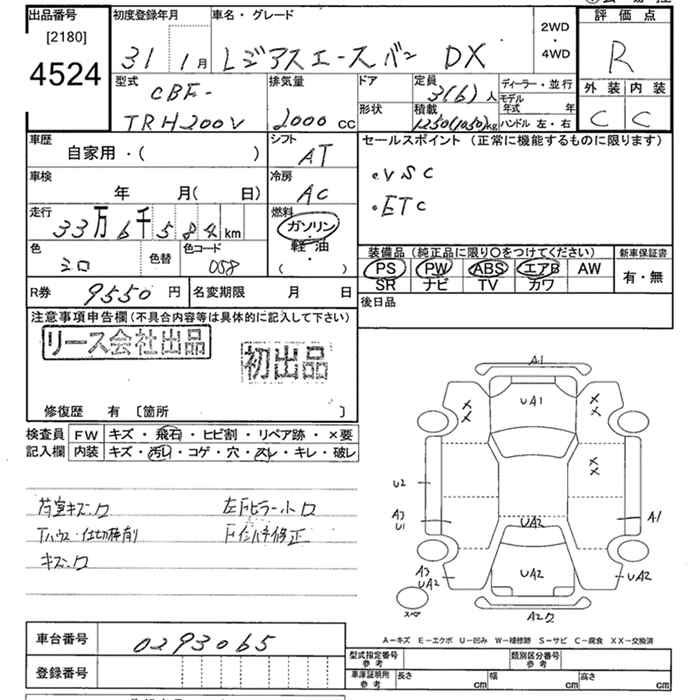 出品番号
[2180]
4524
初度登録年月
31 1月
車名・グレード
レジアスエースバン DX
2WD
・
4WD
評価点
R
外装 内装
C C
型式
CBF-
TRH200V
排気量
2000 cc
ドア
形状
定員
3(6)人
積載
1250(1050)kg
ディーラー・並行
モデル年式 年
ハンドル 左・右
車歴
自家用・( )
シフト
AT
車検
年 月( 日)
冷房
AC
走行
33万6千584km
燃料
ガソリン
軽油
( )
色
シロ
色替
色コード
058
R券 9550 円
名変期限 月 日
セールスポイント (正常に機能するものに限ります)
・VSC
・ETC
装備品 (純正品に限り〇をつけてください)
PS PW ABS エアB AW
SR ナビ TV カワ
新車保証書
有・無
後日品
注意事項申告欄(不具合内容等は具体的に記入して下さい)
リース会社出品
初出品
修復歴 有 〔箇所 〕
検査員
記入欄
FW キズ・飛石・ヒビ割・リペア跡・×要
内装 キズ・汚れ・コゲ・穴・スレ・キレ・破レ
荷室キズ・ワ
左Fピラー小ワ
キズ・ワ
A1
UA1
U2
A3
U1
UA2
A1
A3
UA2
UA2
UA2
スペア
A2ワ
A－キズ E－エクボ U－凹み W－補修跡 S－サビ C－腐食 XX－交換済
車台番号
0293065
登録番号
型式指定番号
参考
類別区分番号
参考
車庫証明用
参考
長さ cm
幅 cm
高さ cm